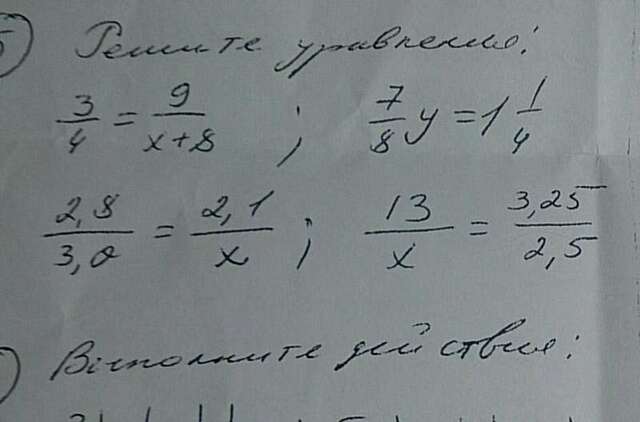 5) Решите уравнения:
3/4 = 9/(x+8) ; 7/8 y = 1 1/4
2,8/3,0 = 2,1/x ; 13/x = 3,25/2,5
) Выполните действия: